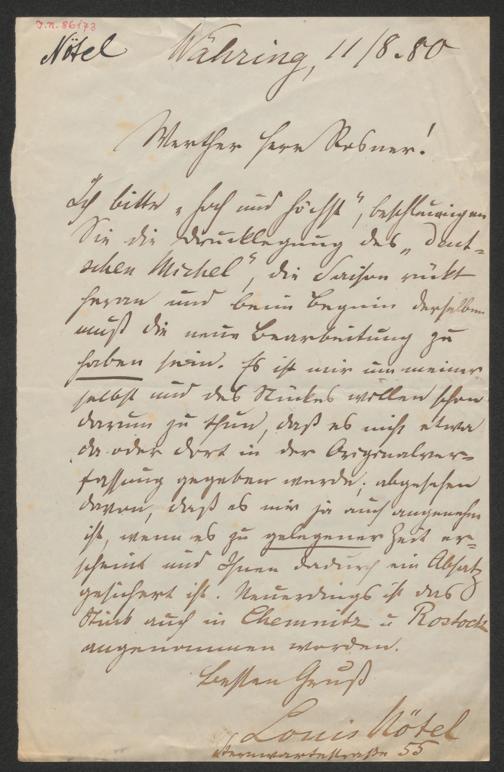 I.N. 86173
Nötel
Währing, 11/8.80
Werther Herr Rosner!
Ich bitte „hoch und höchst“, beschleunigen
Sie die Drucklegung des „Deut-
schen Michel“, die Saison rückt
heran und beim Beginn derselben
muß die neue Bearbeitung zu
haben sein. Es ist mir um meiner
selbst und des Stückes willen schon
darum zu thun, daß es nicht etwa
da oder dort in der Originalver-
fassung gegeben werde; abgesehen
davon, daß es mir ja auch angenehm
ist, wenn es zu gelegener Zeit er-
scheint und Ihnen dadurch ein Absatz
gesichert ist. Neuerdings ist das
Stück auch in Chemnitz u Rostock
angenommen worden.
Besten Gruß
Louis Nötel
Sternwartestraße 55